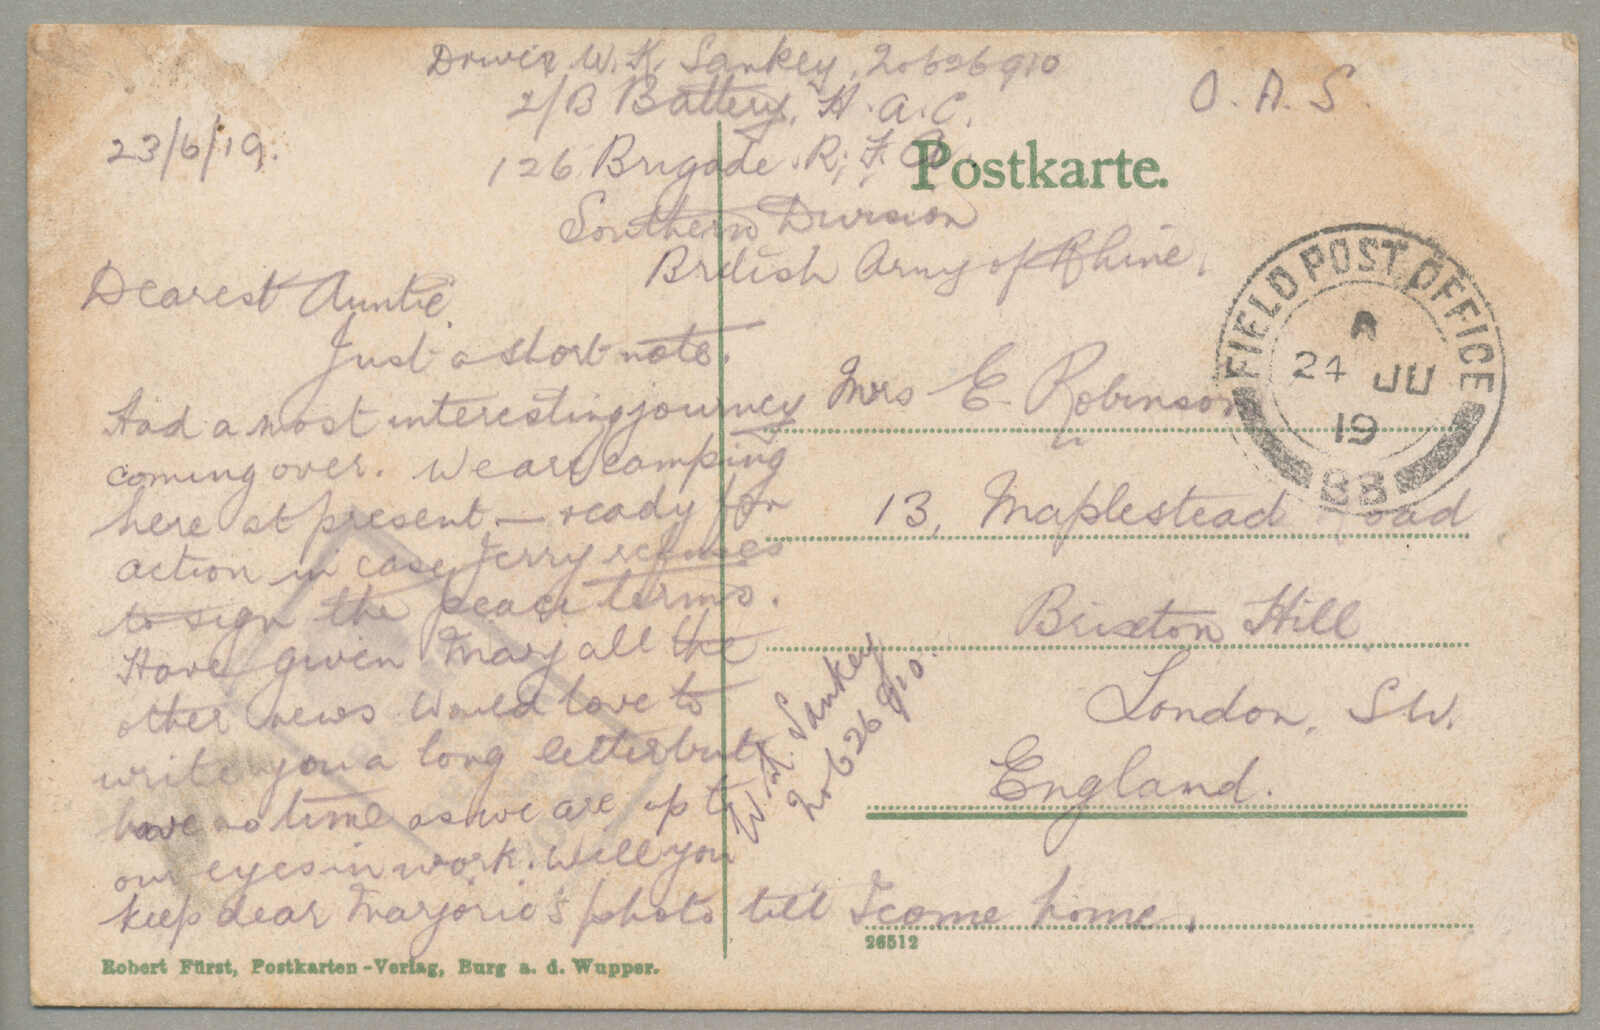 Driver W. K. Sankey, 20626 910
2/B Battery, H.A.C.
126 Brigade. R.F.A.
Southern Division
British Army of Rhine.
O. A. S.
23/6/19.
Postkarte.
Dearest Auntie.
Just a short note.
Had a most interesting journey
coming over. We are camping
here at present — ready for
action in case Jerry refuses
to sign the peace terms.
Have given Mary all the
other news. Would love to
write you a long letter but
have no time as we are up to
our eyes in work. Will you
keep dear Marjorie's photo till I come home.
W. K. Sankey
20626 910.
FIELD POST OFFICE
A
24 JU
19
88
Mrs E. Robinson
13, Maplestead Road
Brixton Hill
London, S.W.
England.
26512
Robert Fürst, Postkarten-Verlag, Burg a. d. Wupper.